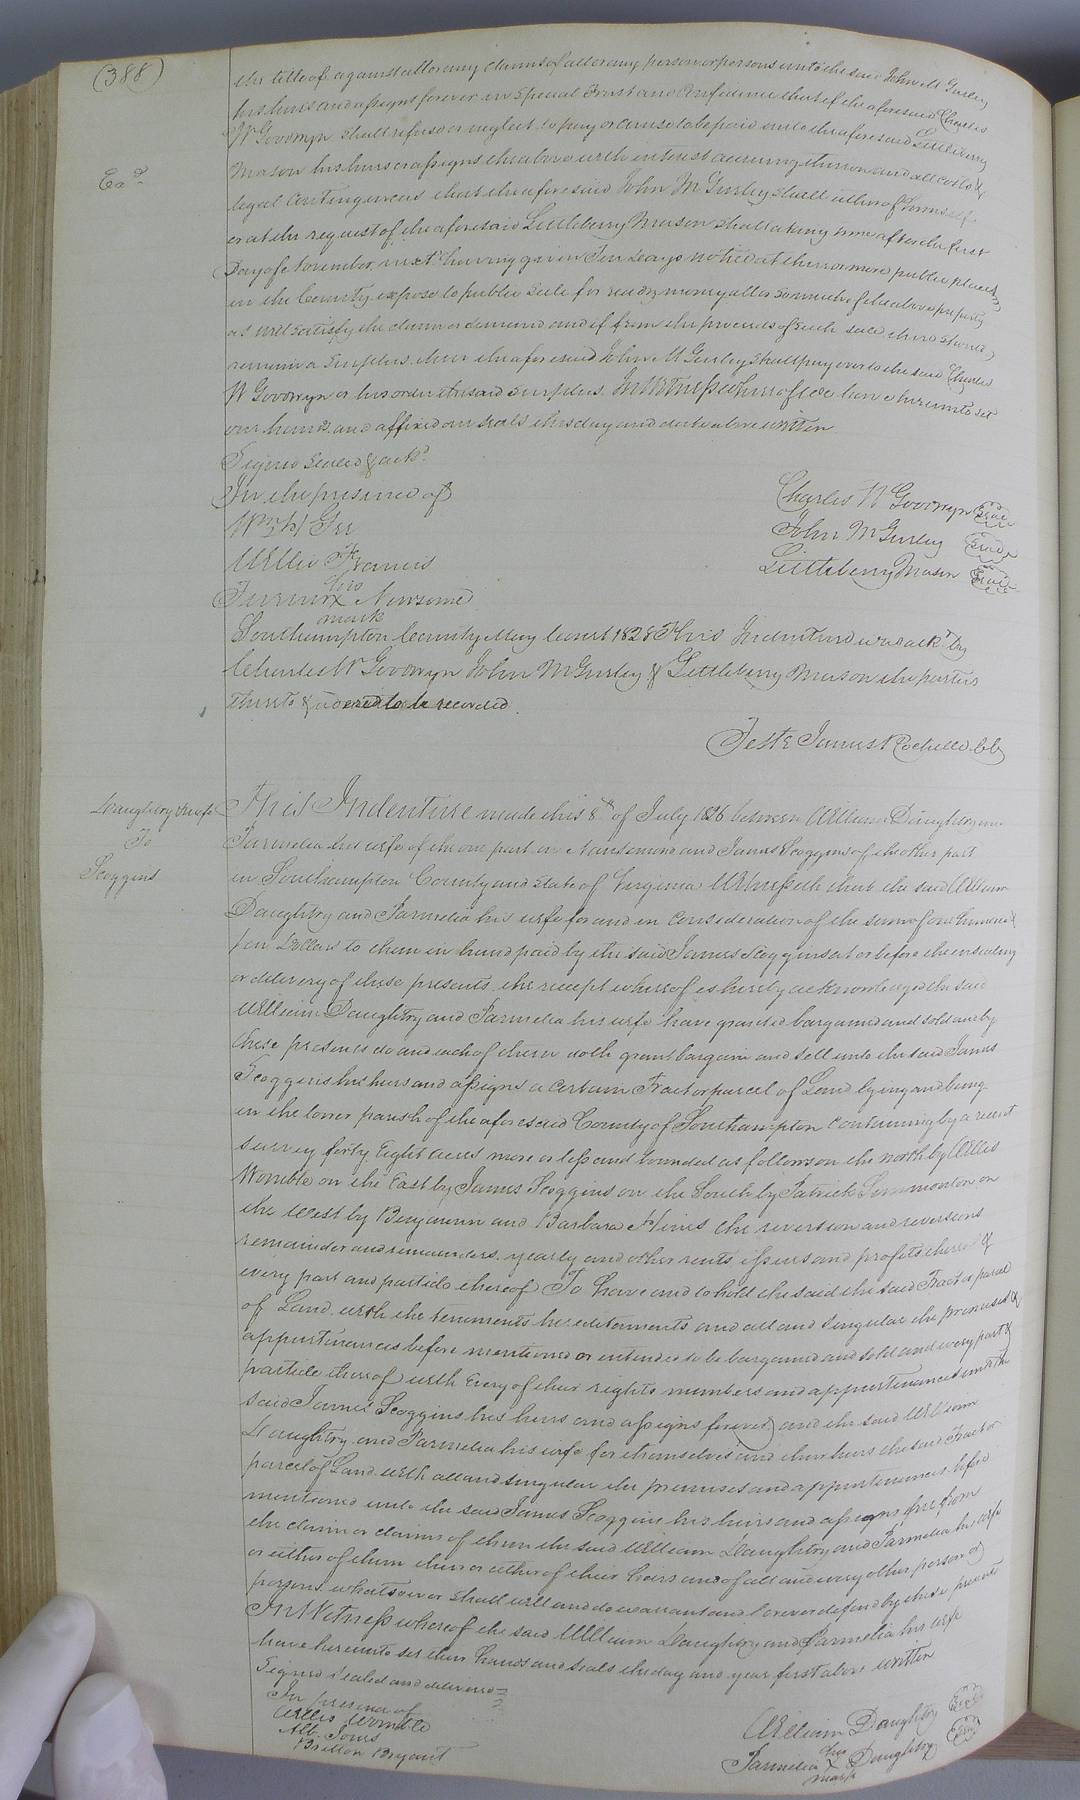 (388)
the title of against all or any claims of all or any person or persons unto the said John M Gurley
his heirs and assigns forever in Special Trust and Confidence that if the aforesaid Charles
W Goodwyn shall refuse or neglect to pay or cause to be paid unto the aforesaid Littleberry
Mason his heirs or assigns the above with interest accruing thereon and all costs &
Exd.
legal Contingences that the aforesaid John M Gurley shall either of himself
or at the request of the aforesaid Littleberry Mason shall at any time after the first
Day of November next having given Ten Days notice at three or more public places
in the County expose to public Sale for ready money all or so much of the above property
as will satisfy the claim or demand and if from the proceeds of such sale there should
remain a Surplus then the aforesaid John M Gurley shall pay over to the said Charles
W Goodwyn or his order the said surplus. In Witness whereof we have hereunto set
our hands and affixed our seals this day and date above written
Signed Sealed & ackd.
In the presence of
Charles W Goodwyn Seal
Wm H
John M Gurley Seal
Willie Francis
Littleberry Mason Seal
his
Turner x Newsome
mark
Southampton County May Court 1828 This Indenture was ackd. by
Charles W Goodwyn John M Gurley & Littleberry Mason the parties
thereto & ordered to be recorded.
Teste James Rochelle CC
Daughtry & wife
To
Scoggins
This Indenture made this 8th of July 1826 between William Daughtry and
Parmelia his wife of the one part in Nansemond and James Scoggins of the other part
in Southampton County and State of Virginia Witnesseth that the said William
Daughtry and Parmelia his wife for and in Consideration of the sum of one hundred
ten Dollars to them in hand paid by the said James Scoggins at or before the ensealing
or delivery of these presents the receipt whereof is hereby acknowledged the said
William Daughtry and Parmelia his wife have granted bargained and sold and by
these presents do and each of them doth grant bargain and sell unto the said James
Scoggins his heirs and assigns a certain Tract or parcel of Land lying and being
in the lower parish of the aforesaid County of Southampton Containing by a recent
survey forty Eight acres more or less and bounded as follows on the north by Willis
Womble on the East by James Scoggins on the South by Patrick Simmonton on
the West by Benjamin and Barbara Hines the reversion and reversions
remainder and remainders yearly and other rents issues and profits thereof &
every part and particle thereof To have and to hold the said the said Tract or parcel
of Land with the tenements hereditaments and all and singular the premises &
appurtenances before mentioned or intended to be bargained and sold and every part &
particle thereof with Every of their rights members and appurtenances unto the
said James Scoggins his heirs and assigns forever and the said William
Daughtry and Parmelia his wife for themselves and their heirs the said Tract or
parcel of Land with all and singular the premises and appurtenances before
mentioned unto the said James Scoggins his heirs and assigns free from
the claim or claims of them the said William Daughtry and Parmelia his wife
or either of them their or either of their heirs and of all and every other person or
persons whatsoever shall will and do warrant and forever defend by these presents
In Witness whereof the said William Daughtry and Parmelia his wife
have hereunto set their hands and seals the day and year first above written
Signed Sealed and delivered
In presence of
Willis Womble
William Daughtry Seal
Alb. Jones
her
Parmelia x Daughtry Seal
mark
Britton Bryant